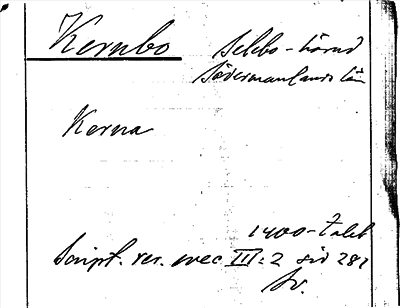 Kernbo Selebo-härad
Södermanlands län
Kerna
1400-talet
Script. rer. svec III:2 sid 287
Lv.